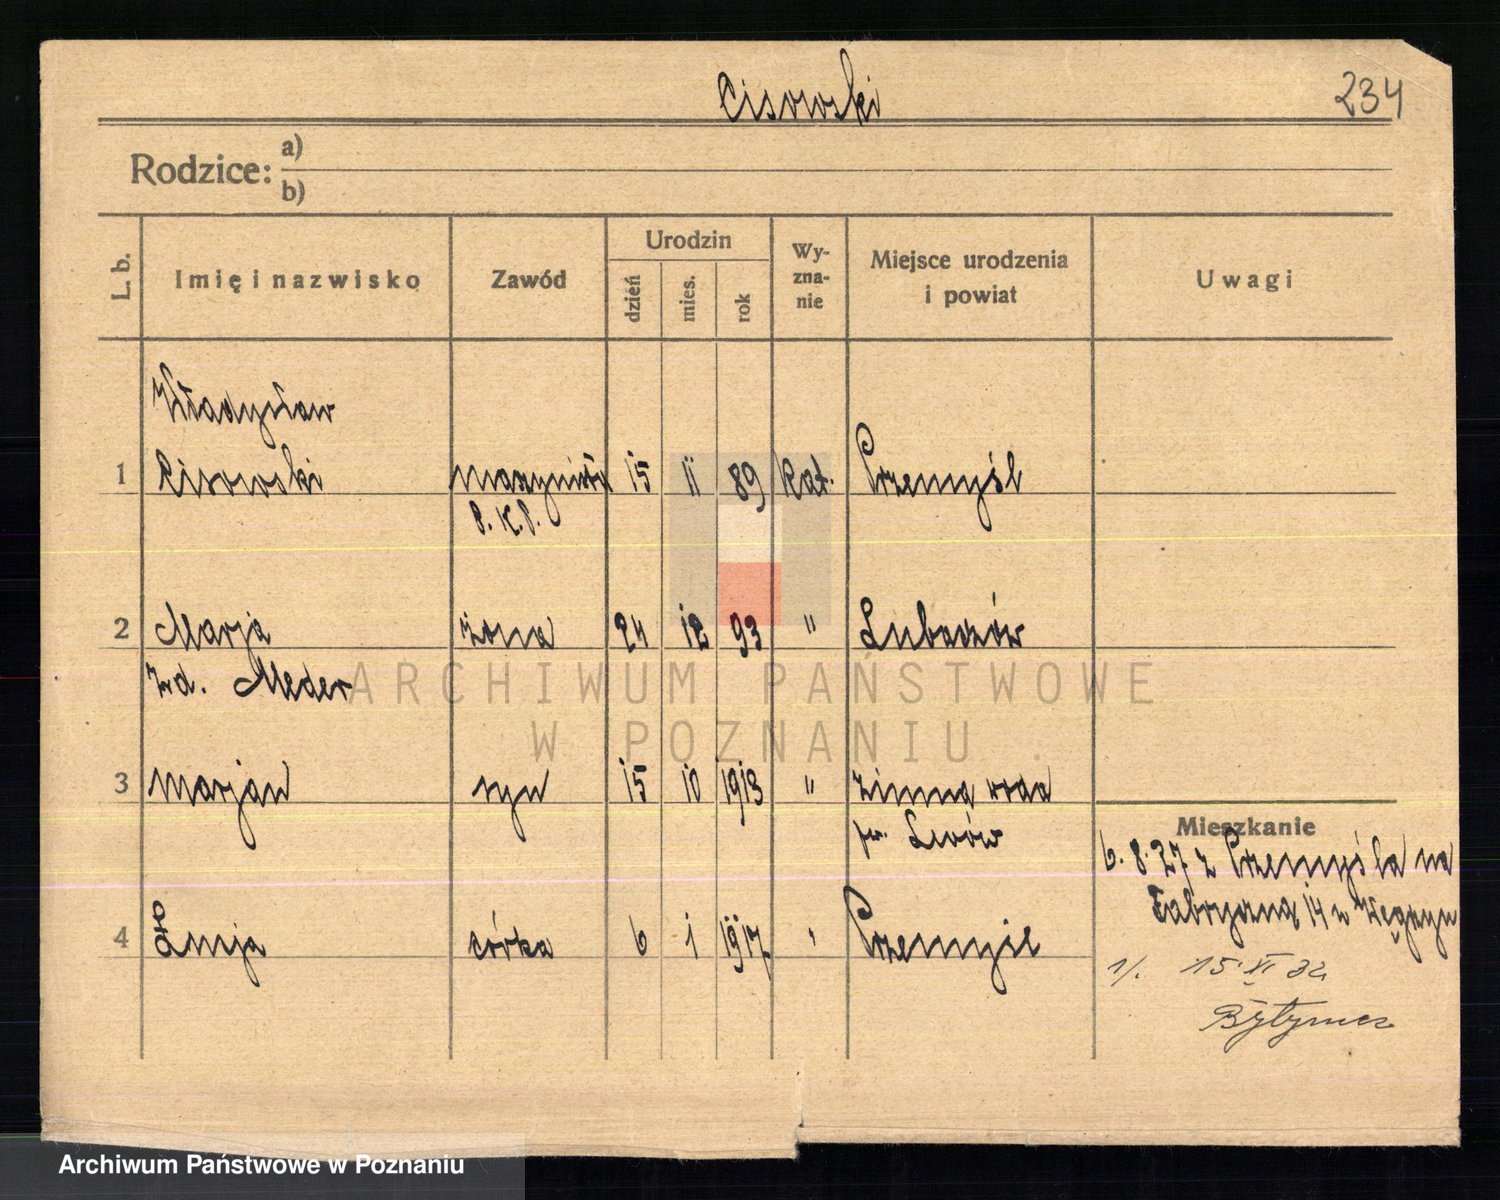 Cisowski
234
Rodzice: a)
b)
L. b.
Imię i nazwisko
Zawód
Urodzin
dzień
mies.
rok
Wy-
zna-
nie
Miejsce urodzenia
i powiat
Uwagi
Władysław
1 Cisowski maszynista 15 11 89 kat. Przemyśl
P.K.P.
2 Marja żona 24 12 93 " Lubaczów
zd. Meder
3 Marjan syn 15 10 1913 " Zimna woda
pw. Lwów
4 córka 6 1 1917 " Przemyśl
Mieszkanie
6.8.27 z Przemyśla na
Fabryczną 14 u
1/. 15 XI 32
ARCHIWUM PAŃSTWOWE
W POZNANIU
Archiwum Państwowe w Poznaniu